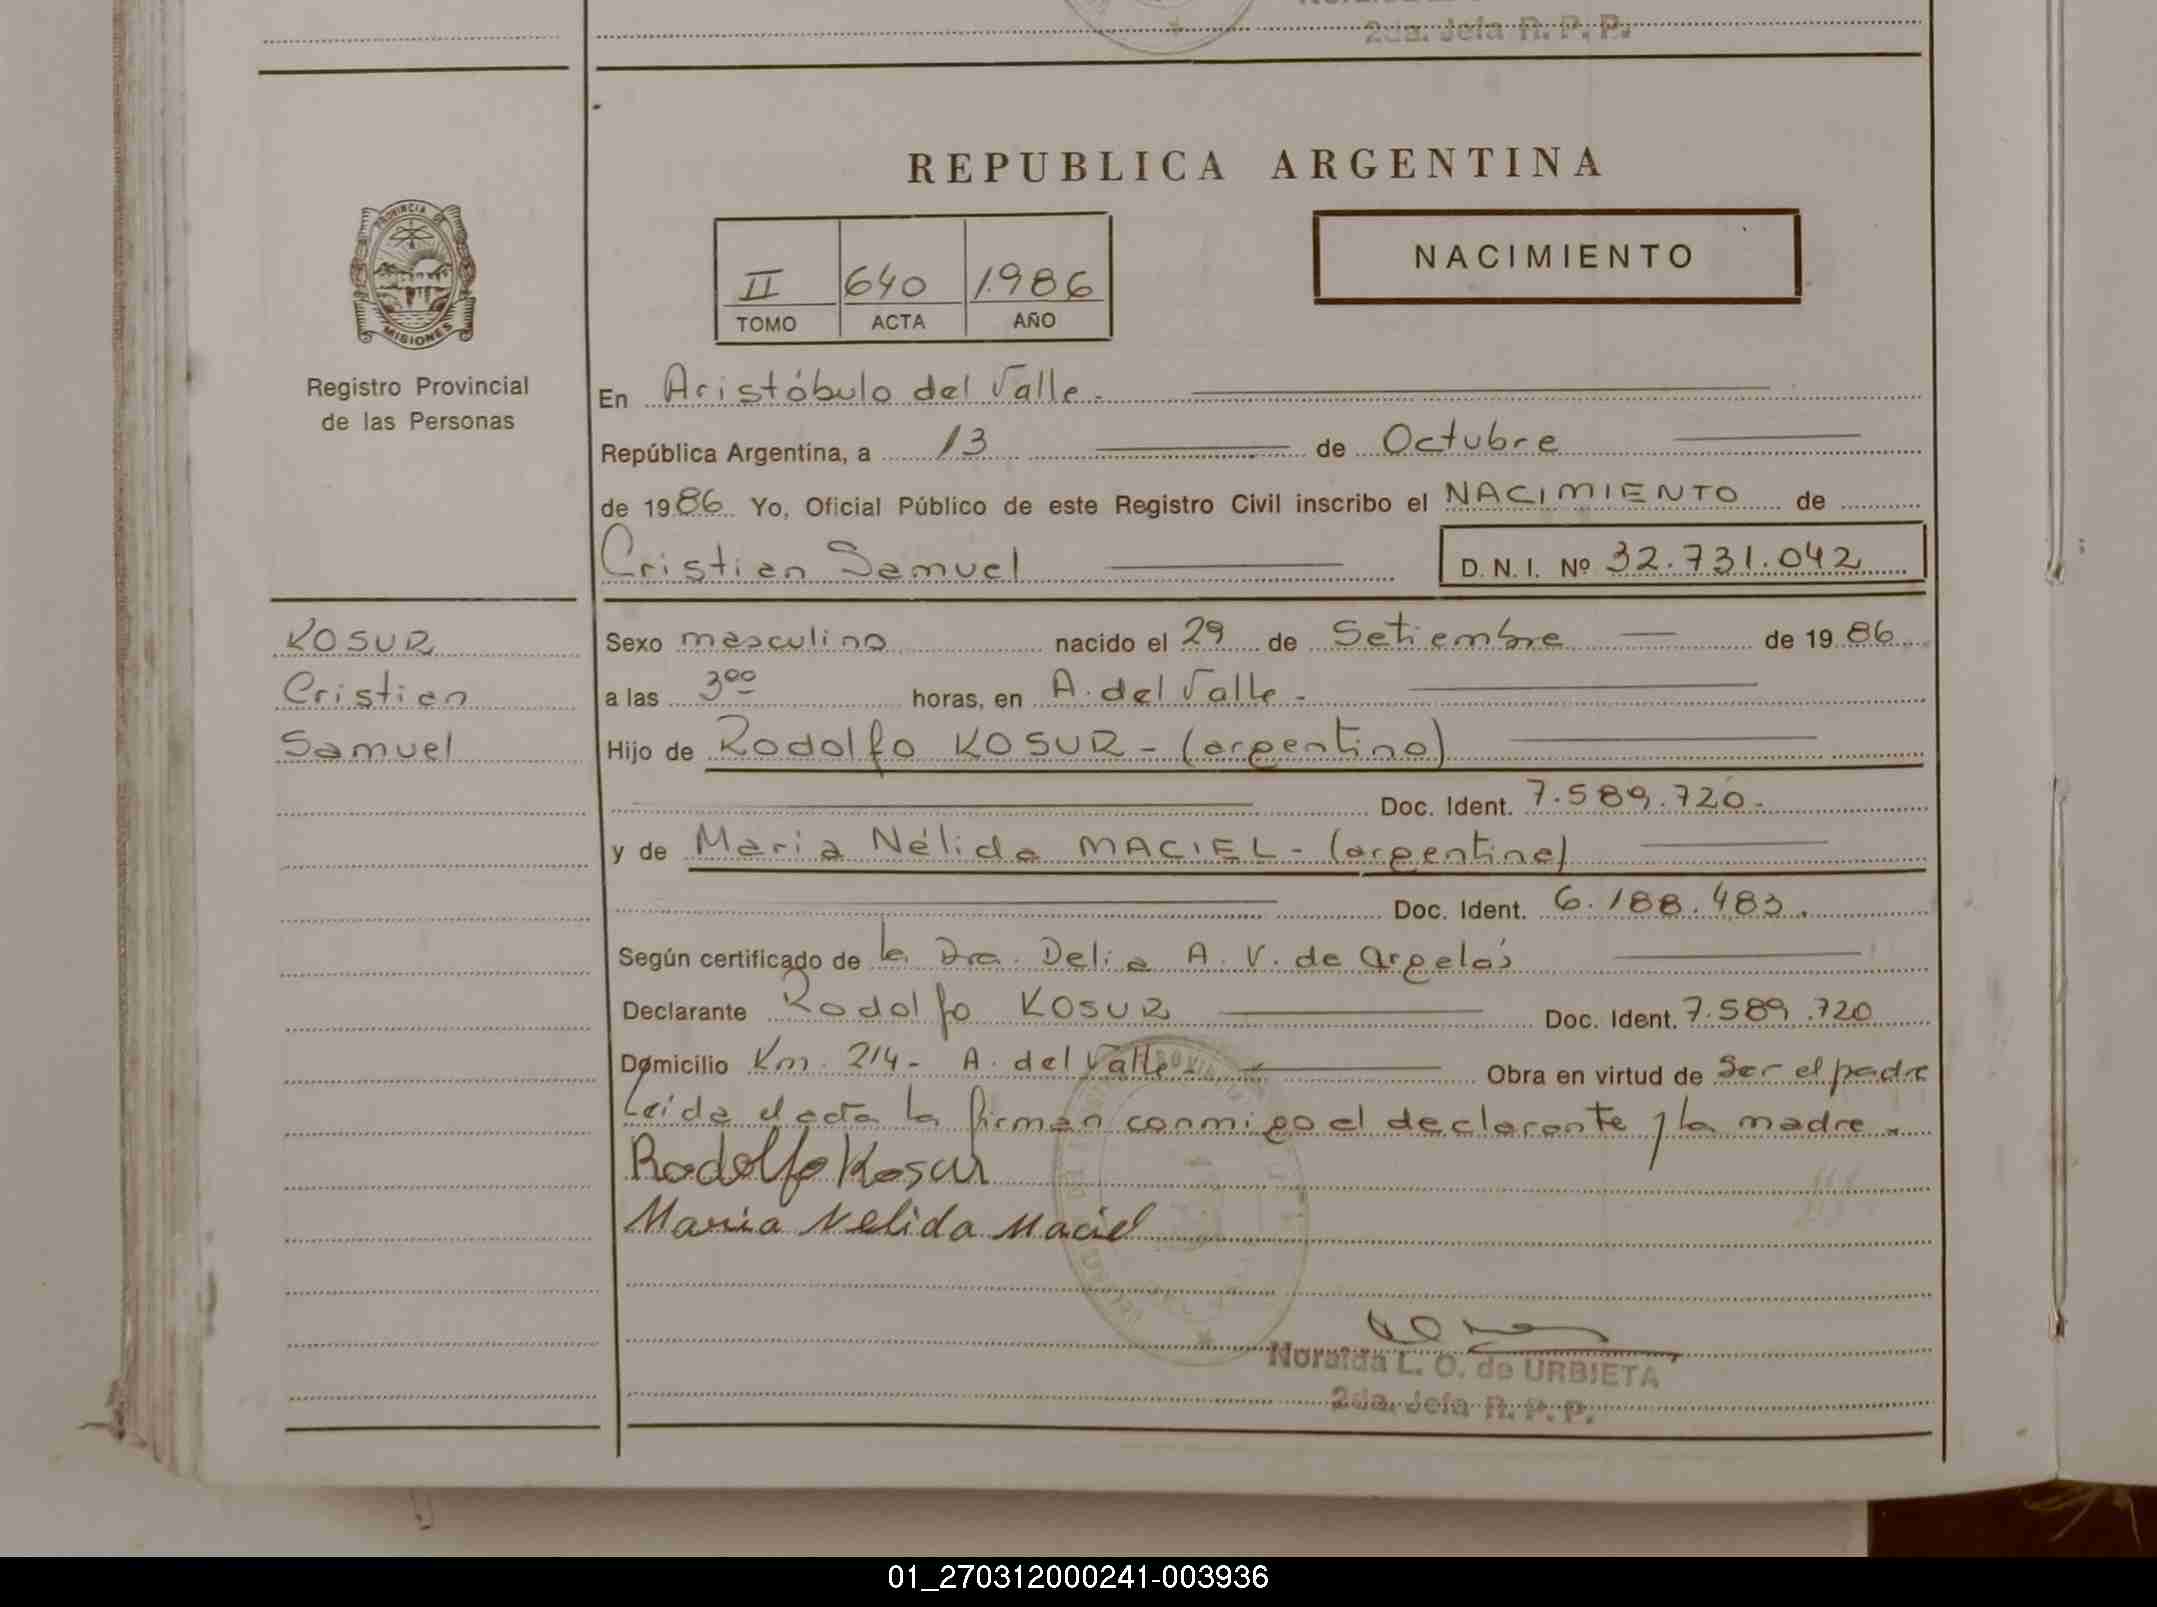 2da. Jefa R. P. P.
REPUBLICA ARGENTINA
PROVINCIA DE
MISIONES
Registro Provincial
de las Personas
II 640 1.986
TOMO ACTA AÑO
NACIMIENTO
En Aristóbulo del Valle.
República Argentina, a 13 de Octubre
de 1986 Yo, Oficial Público de este Registro Civil inscribo el NACIMIENTO de
Cristian Samuel D. N. I. Nº 32.731.042
KOSUR
Cristian
Samuel
Sexo masculino nacido el 29 de Setiembre de 1986
a las 3⁰⁰ horas, en A. del Valle -
Hijo de Rodolfo KOSUR - (argentino)
Doc. Ident. 7.589.720.
y de Maria Nélida MACIEL - (argentina)
Doc. Ident. 6.188.483.
Según certificado de la Dra. Delia A. V. de
Declarante Rodolfo KOSUR Doc. Ident. 7.589.720
Domicilio Km. 214 - A. del Valle Obra en virtud de Ser el padre
Leida el acta la firman conmigo el declarante y la madre.
Rodolfo Kosur
Maria Nelida Maciel
Noraida L. O. de URBIETA
2da. Jefa R. P. P.
01_270312000241-003936